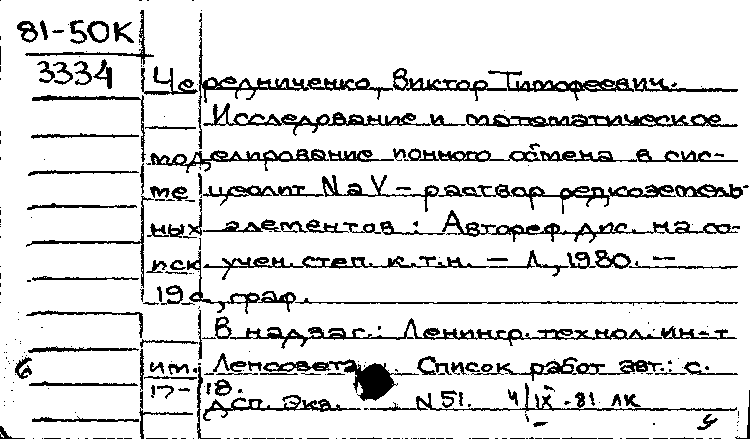 81-50К
3334 Чередниченко, Виктор Тимофеевич.
Исследование и математическое
моделирование ионного обмена в сис-
те цеолит NaV – раствор редкоземель-
ных элементов : Автореф. дис. на со-
иск. учен. степ. к.т.н. – Л., 1980. –
19 с., граф.
В надзаг.: Ленингр. технол. ин-т
им. Ленсовета. Список работ авт.: с.
17-18.
Дсп. Экз. N 51. 4/IX-81 ЛК